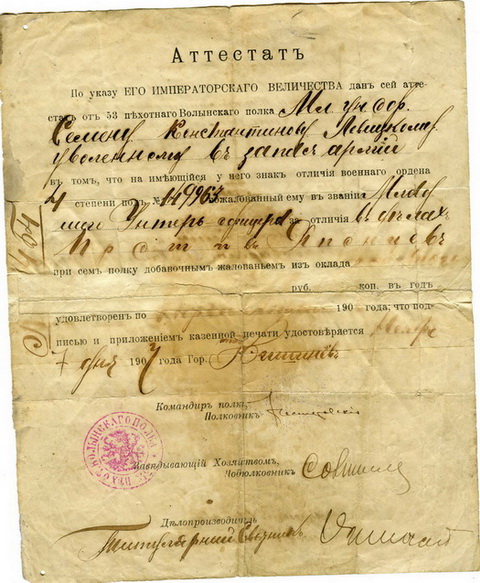 Аттестатъ
По указу ЕГО ИМПЕРАТОРСКАГО ВЕЛИЧЕСТВА данъ сей атте-
статъ отъ 53 пѣхотнаго Волынскаго полка Мл. унт. офр.
Семену Константинову
уволенному въ запасъ арміи
въ томъ, что на имѣющійся у него знакъ отличія военнаго ордена
4 степени подъ № 119963 пожалованный ему въ званіи Млад
шаго Унтеръ-офицера за отличія въ дѣлахъ
противъ Японцевъ
при семъ полку добавочнымъ жалованьемъ изъ оклада
руб. коп. въ годъ
удовлетворенъ по 190 года; что под-
писью и приложеніемъ казенной печати удостовѣряется
7 дня 1907 года Гор. Кишиневъ
Командиръ полка,
Полковникъ
Завѣдывающій Хозяйствомъ,
Подполковникъ
Дѣлопроизводитель
Титулярный Совѣтникъ
ВОЛЫНСКАГО ПОЛКА